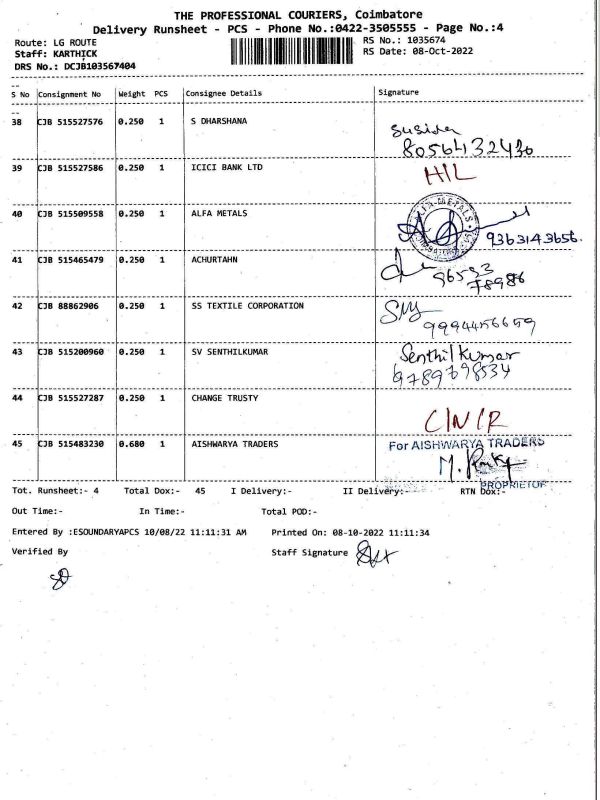 THE PROFESSIONAL COURIERS, Coimbatore
Delivery Runsheet - PCS - Phone No.:0422-3505555 - Page No.:4
Route: LG ROUTE RS No.: 1035674
Staff: KARTHICK RS Date: 08-Oct-2022
DRS No.: DCJB103567404
S No Consignment No Weight PCS Consignee Details Signature
38 CJB 515527576 0.250 1 S DHARSHANA
8056432430
39 CJB 515527586 0.250 1 ICICI BANK LTD H/L
40 CJB 515509558 0.250 1 ALFA METALS
9363143656.
41 CJB 515465479 0.250 1 ACHURTAHN
96593
78986
42 CJB 88862906 0.250 1 SS TEXTILE CORPORATION
9994456659
43 CJB 515200960 0.250 1 SV SENTHILKUMAR Senthil kumar
9789798534
44 CJB 515527287 0.250 1 CHANGE TRUSTY
C/N/R
45 CJB 515483230 0.680 1 AISHWARYA TRADERS For AISHWARYA TRADERS
PROPRIETOR
Tot. Runsheet:- 4 Total Dox:- 45 I Delivery:- II Delivery:- RTN Dox:-
Out Time:- In Time:- Total POD:-
Entered By :ESOUNDARYAPCS 10/08/22 11:11:31 AM Printed On: 08-10-2022 11:11:34
Verified By Staff Signature